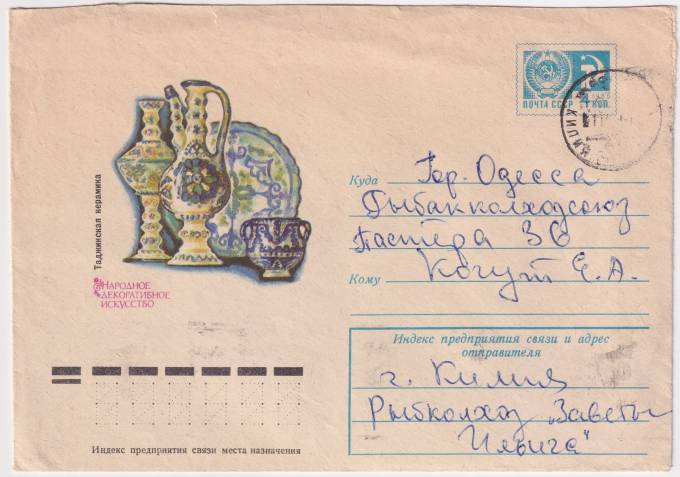 ПОЧТА СССР 4 КОП.
КИЛИЯ
Таджикская керамика
НАРОДНОЕ
ДЕКОРАТИВНОЕ
ИСКУССТВО
Куда Гор. Одесса
Рыбакколхозсоюз
Пастера 36
Кому Когут Е.А.
Индекс предприятия связи и адрес
отправителя
г. Килия
Рыбколхоз „Заветы
Ильича"
Индекс предприятия связи места назначения